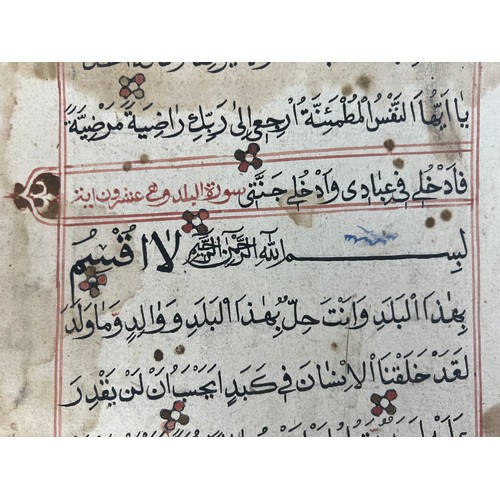 يا ايها النفس المطمئنة ارجعى الى ربك راضية مرضية
فادخلى فى عبادى وادخلى جنتى سورة البلد وهى عشرون اية
بسم الله الرحمن الرحيم لا اقسم
بهذا البلد وانت حل بهذا البلد ووالد وما ولد
لقد خلقنا الانسان فى كبد ايحسب ان لن يقدر